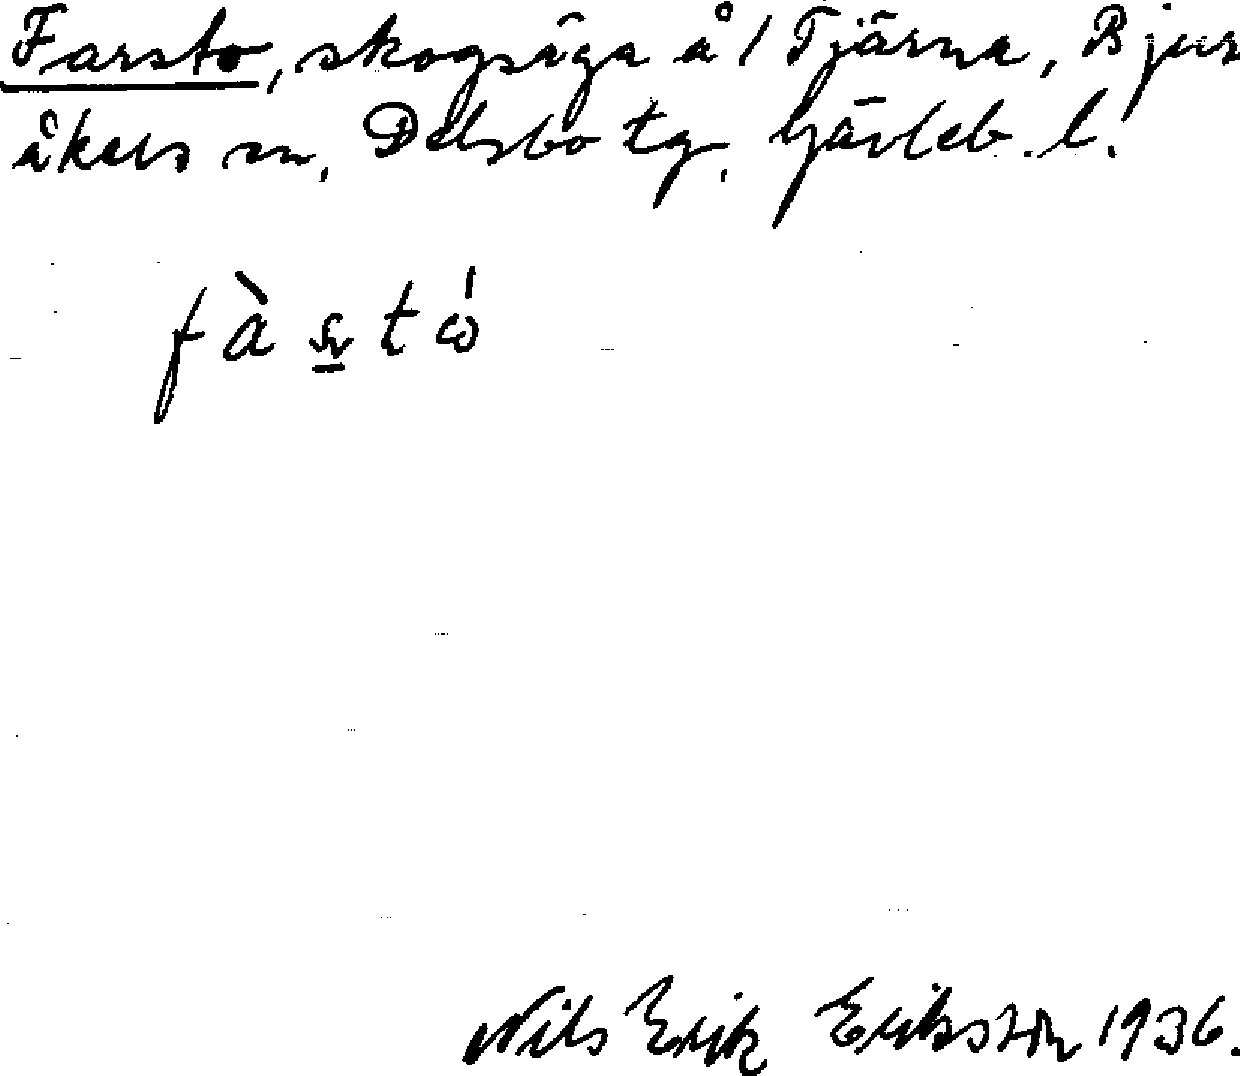 Farsto, skogsäga å 1 Tjärna, Bjur
åkers sn, Delsbo tg, Gävleb. l.
fàstó
Nils Erik Eriksson 1936.